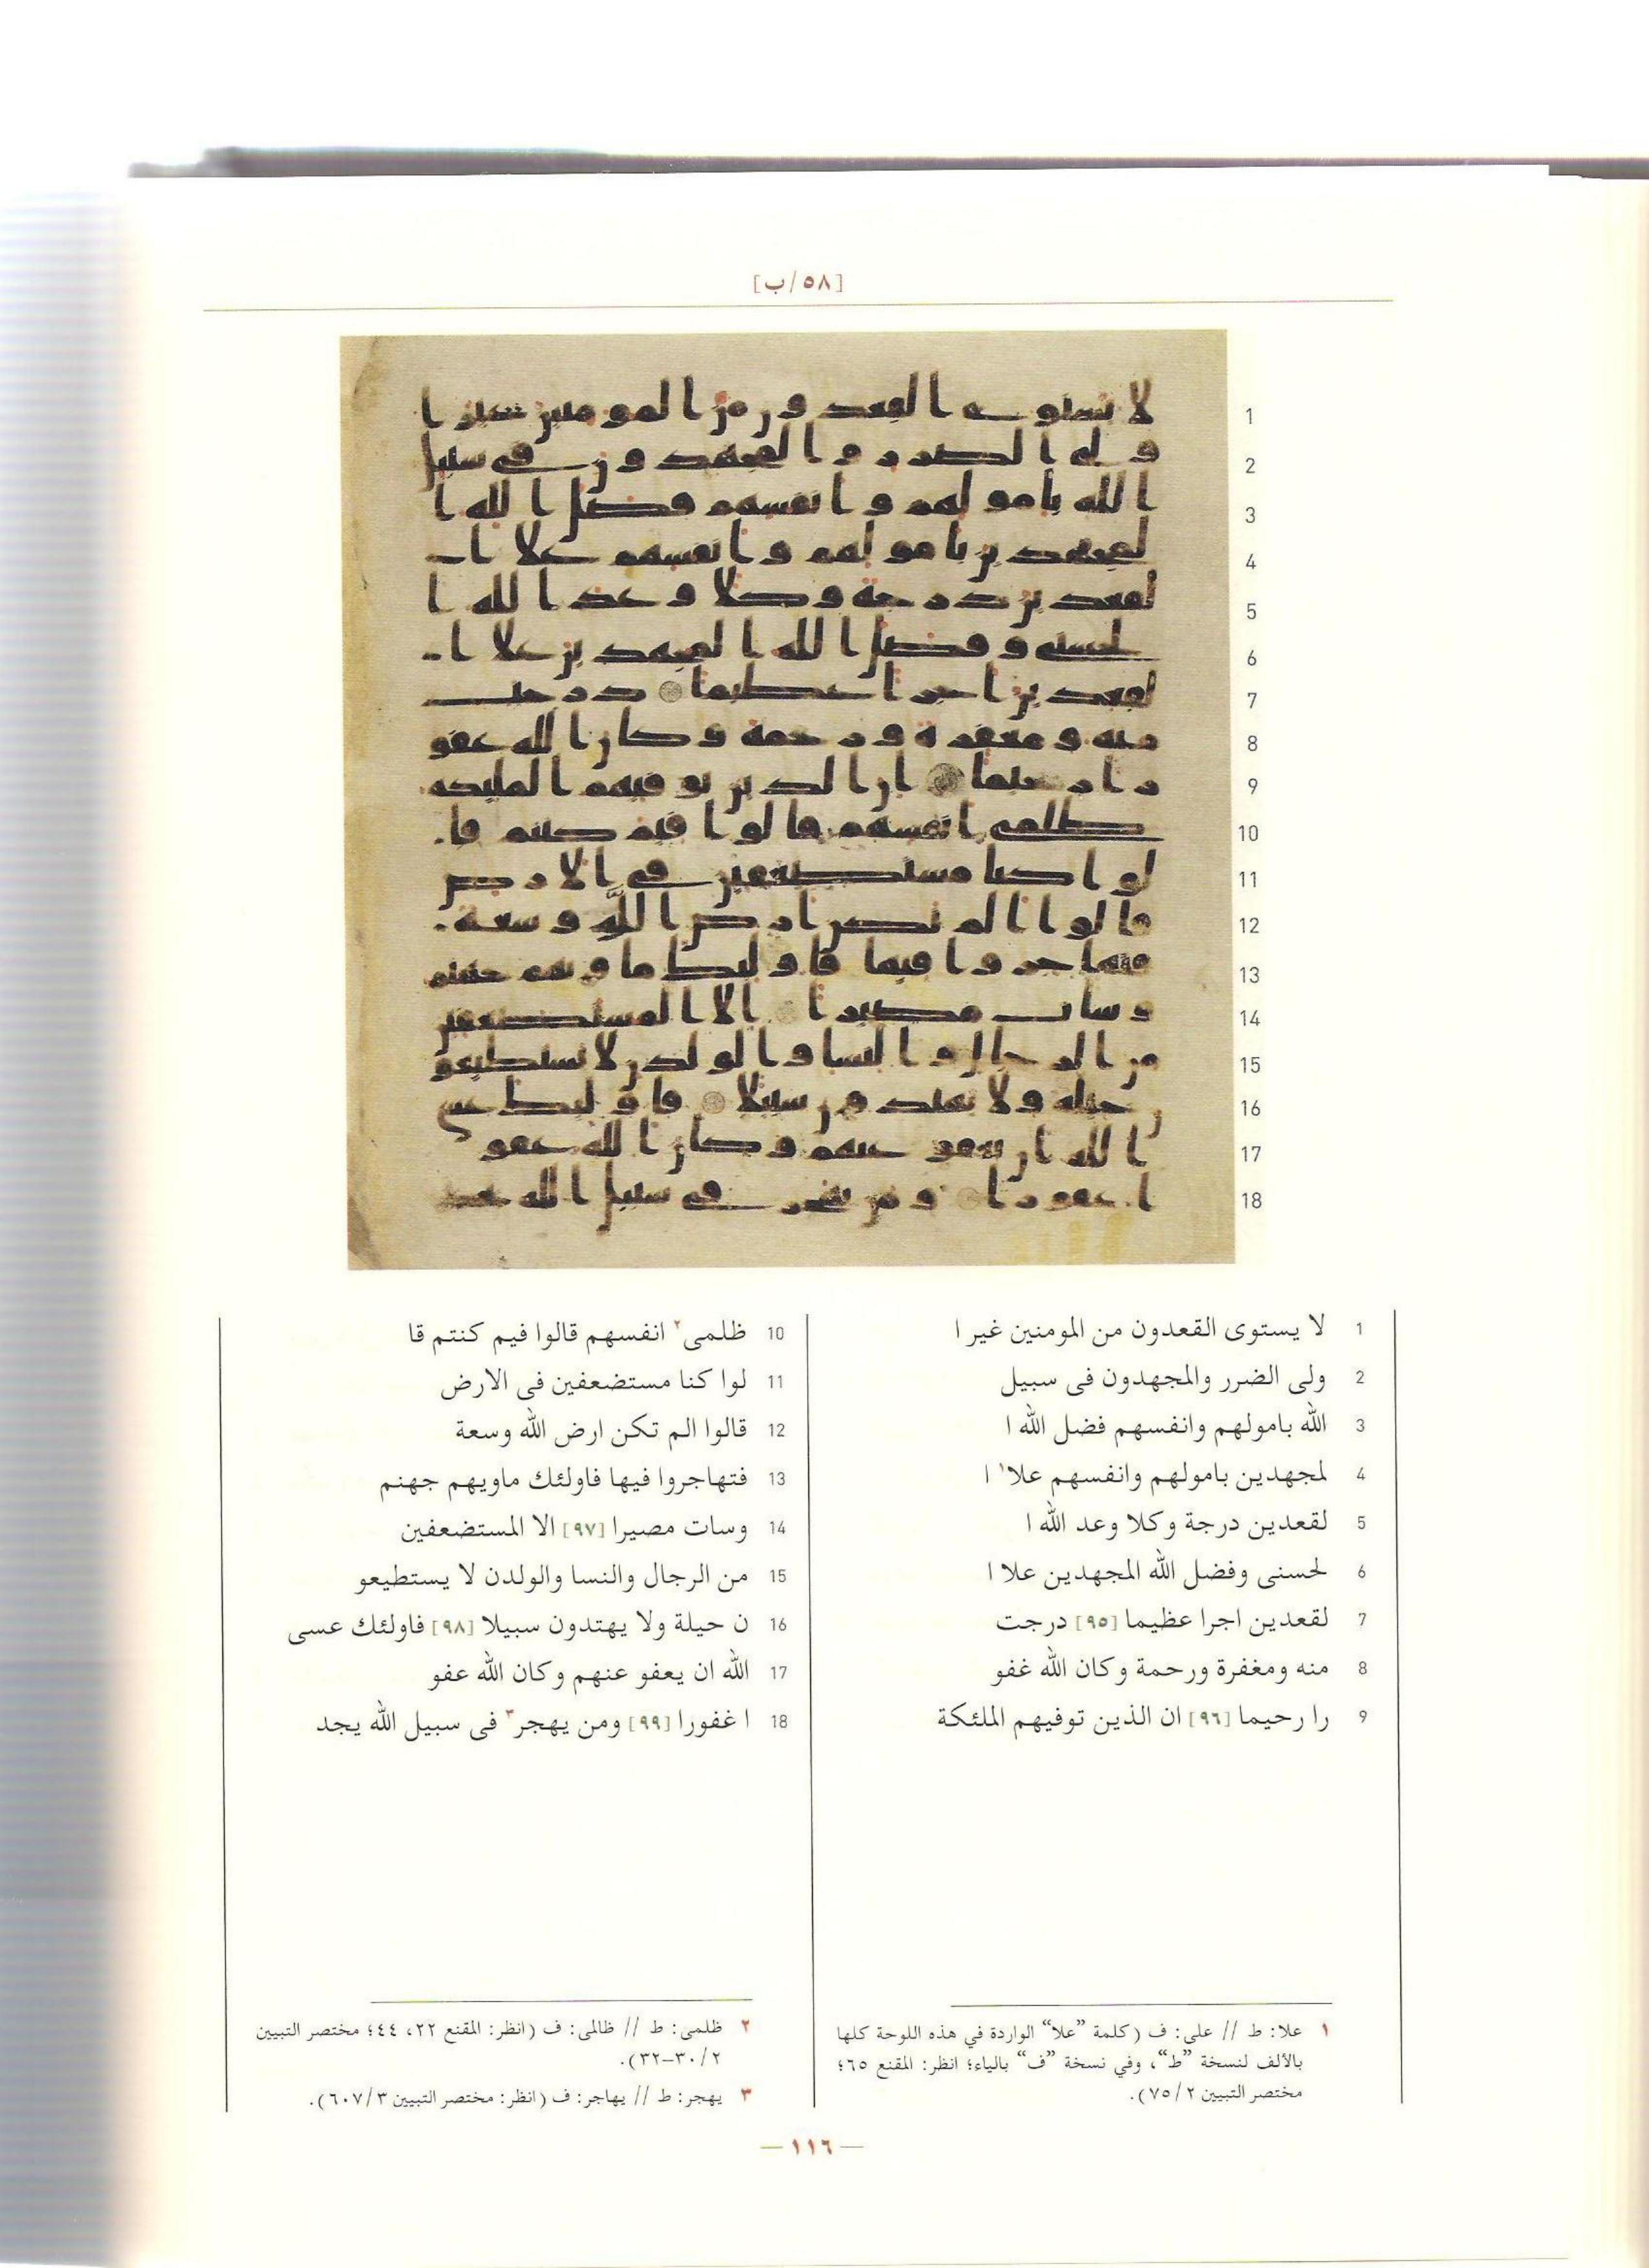 [٥٨/ب]
1 لا يستوى القعدون من المومنين غير ا
2 ولى الضرر والمجهدون فى سبيل
3 الله بامولهم وانفسهم فضل الله ا
4 لمجهدين بامولهم وانفسهم علا١ ا
5 لقعدين درجة وكلا وعد الله ا
6 لحسنى وفضل الله المجهدين علا ا
7 لقعدين اجرا عظيما [٩٥] درجت
8 منه ومغفرة ورحمة وكان الله غفو
9 را رحيما [٩٦] ان الذين توفيهم الملئكة
10 ظلمى٢ انفسهم قالوا فيم كنتم قا
11 لوا كنا مستضعفين فى الارض
12 قالوا الم تكن ارض الله وسعة
13 فتهاجروا فيها فاولئك ماويهم جهنم
14 وسات مصيرا [٩٧] الا المستضعفين
15 من الرجال والنسا والولدن لا يستطيعو
16 ن حيلة ولا يهتدون سبيلا [٩٨] فاولئك عسى
17 الله ان يعفو عنهم وكان الله عفو
18 ا غفورا [٩٩] ومن يهجر٣ فى سبيل الله يجد
١ علا: ط // على: ف (كلمة ”علا“ الواردة في هذه اللوحة كلها
بالألف لنسخة ”ط“، وفي نسخة ”ف“ بالياء؛ انظر: المقنع ٦٥؛
مختصر التبيين ٧٥/٢).
٢ ظلمى: ط // ظالمى: ف (انظر: المقنع ٢٢، ٤٤؛ مختصر التبيين
٣٠/٢-٣٢).
٣ يهجر: ط // يهاجر: ف (انظر: مختصر التبيين ٦٠٧/٣).
— ١١٦ —